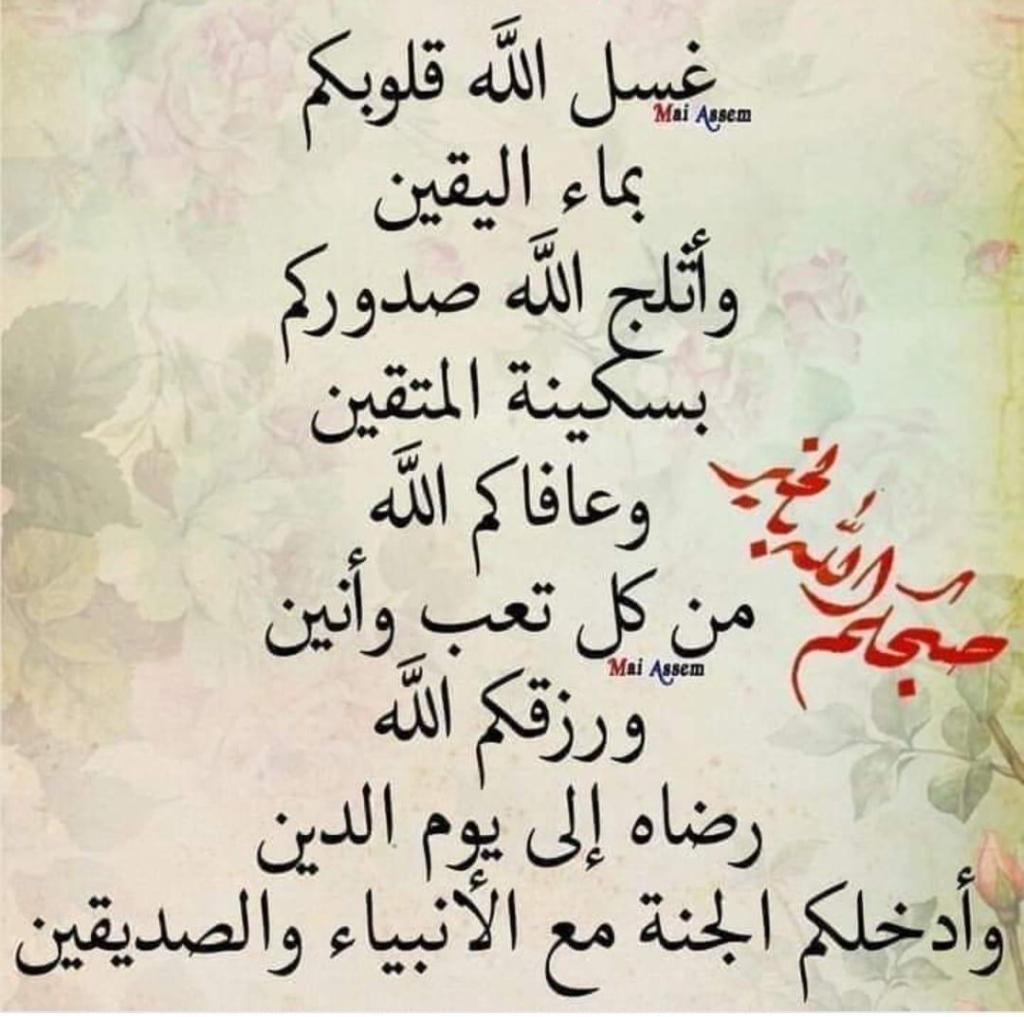 غسل اللَّه قلوبكم
Mai Assem
بماء اليقين
وأتلج اللَّه صدوركم
بسكينة المتقين
وعافاكم اللَّه
من كل تعب وأنين
Mai Assem
ورزقكم اللَّه
رضاه إلى يوم الدين
وأدخلكم الجنة مع الأنبياء والصديقين
صبحكم
الله
بخير